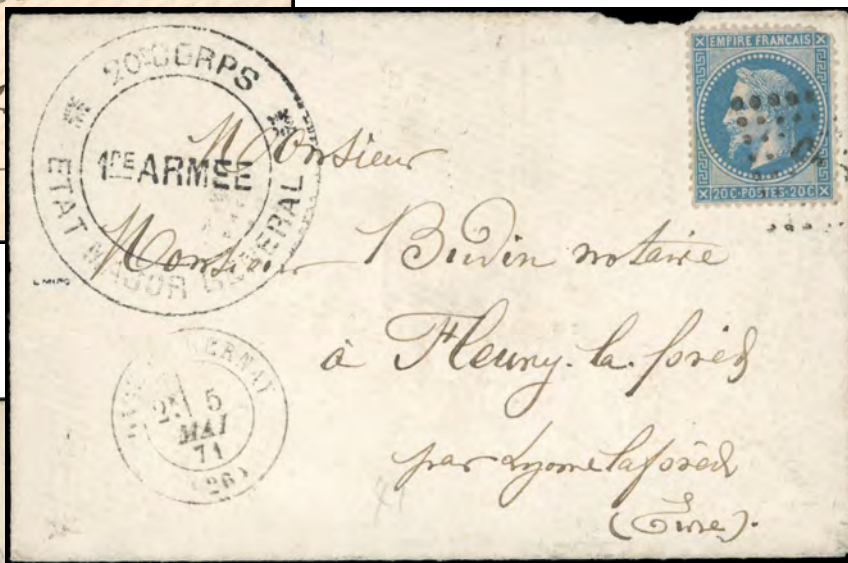 20E CORPS
1RE ARMEE
ETAT MAJOR GENERAL
EMPIRE FRANÇAIS
20C·POSTES·20C
Monsieur
Monsieur Budin notaire
à Fleury la forêt
par Lyons la forêt
(Eure).
5
MAI
71
(26)